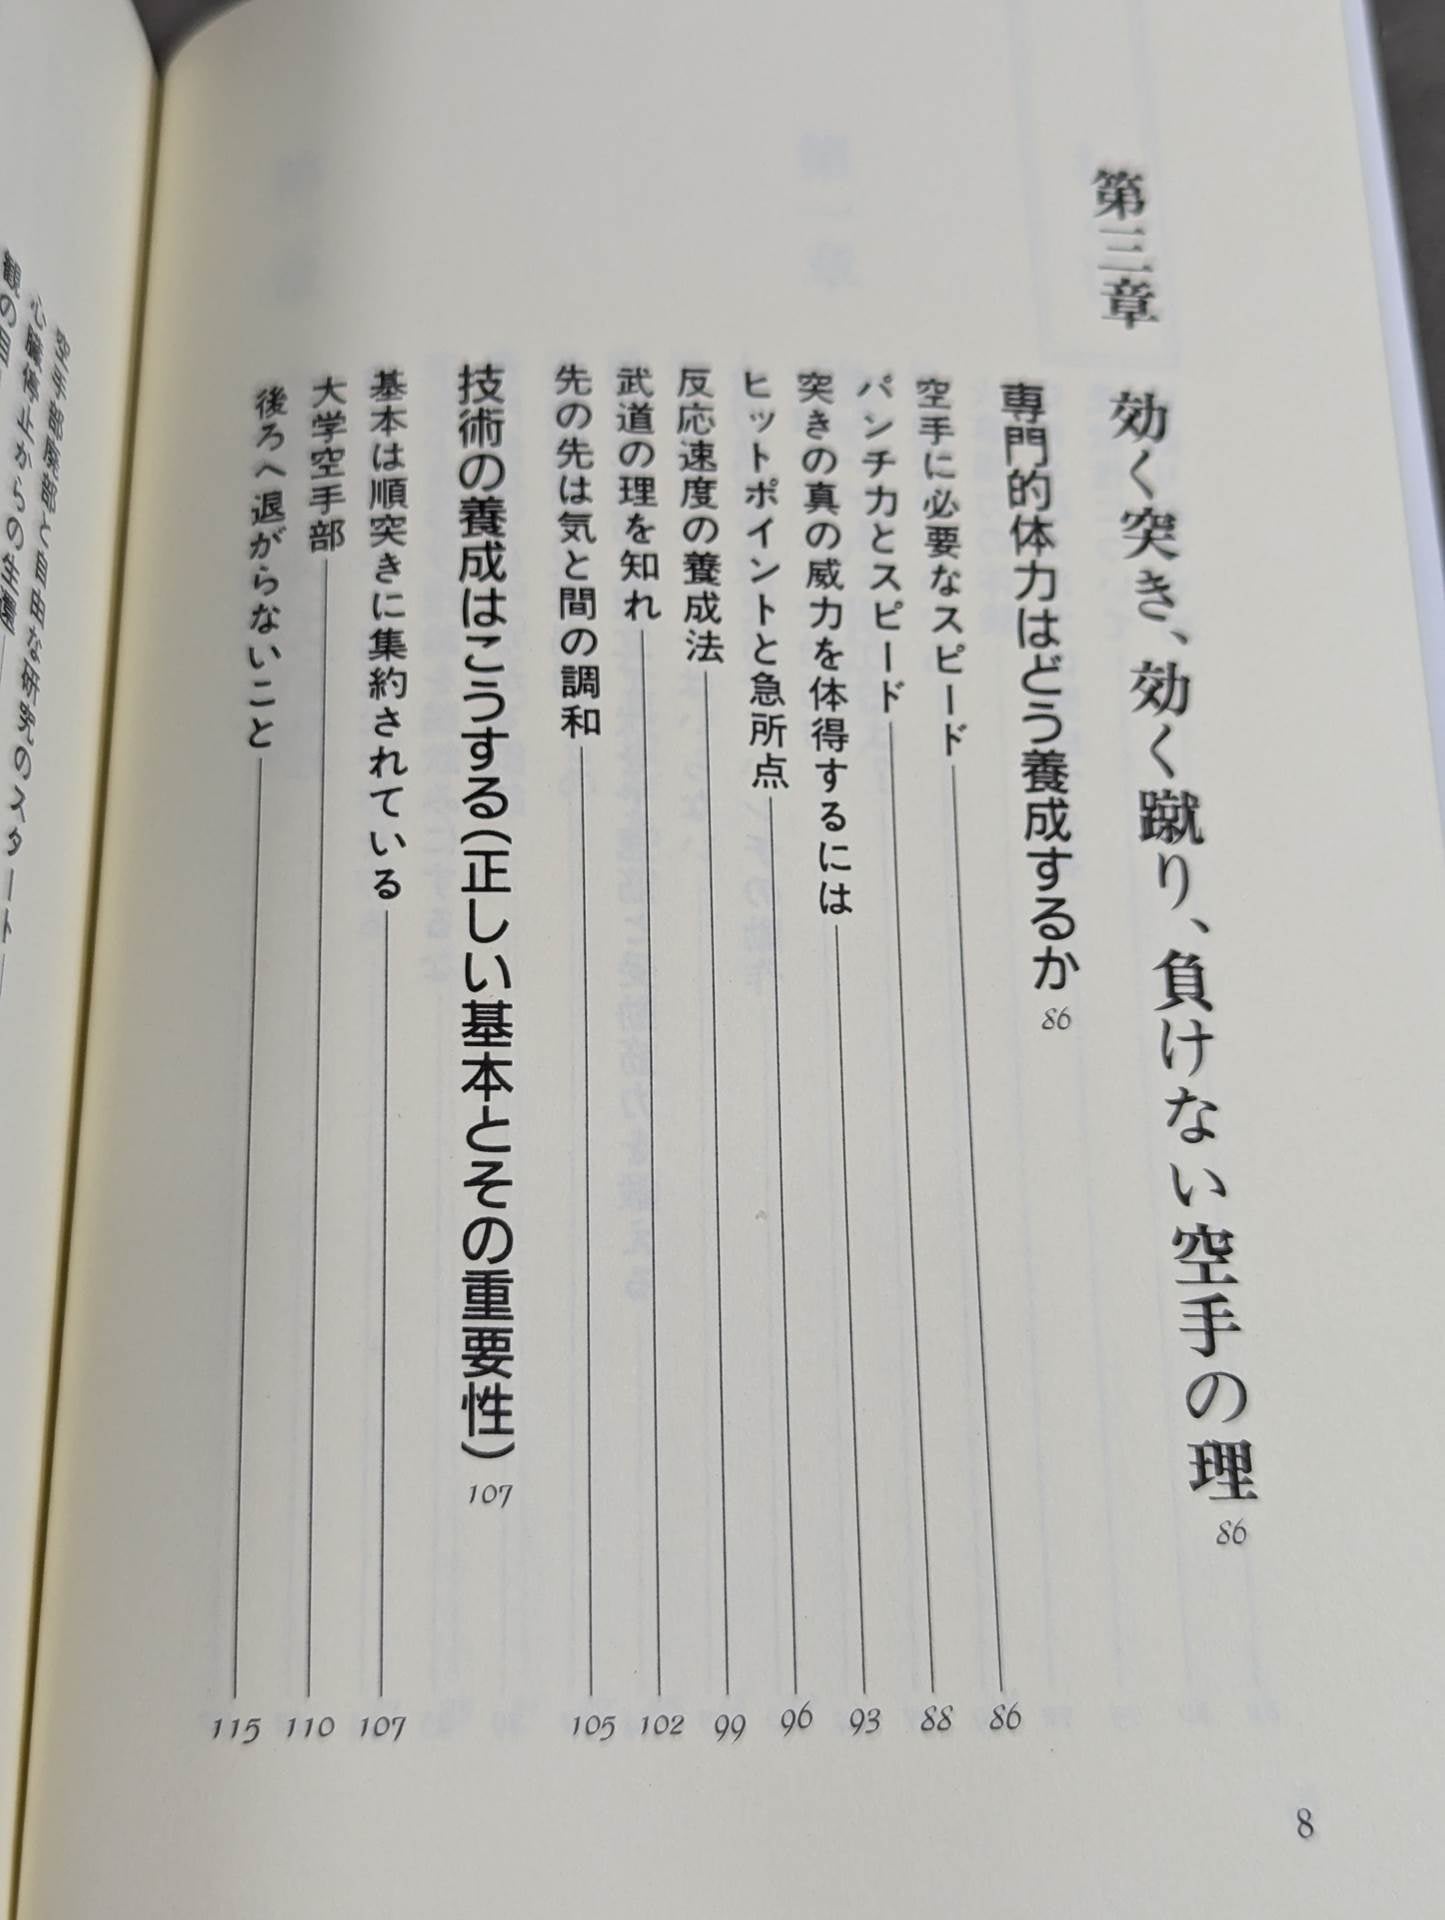 第三章 効く突き、効く蹴り、負けない空手の理 86
専門的体力はどう養成するか 86
空手に必要なスピード 86
パンチ力とスピード 88
突きの真の威力を体得するには 93
ヒットポイントと急所点 96
反応速度の養成法 99
武道の理を知れ 102
先の先は気と間の調和 105
技術の養成はこうする(正しい基本とその重要性) 107
基本は順突きに集約されている 107
大学空手部 110
後ろへ退がらないこと 115
8
空手部廃部と自由な研究のスタート
心臓停止からの生還
観の目